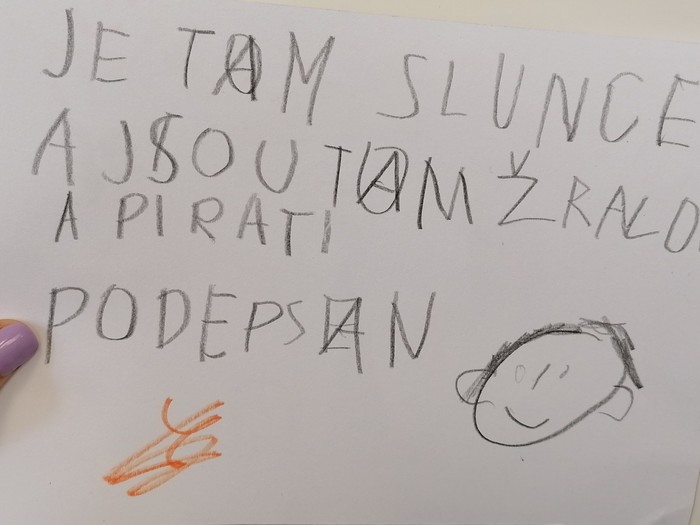 JE TAM SLUNCE
A JSOU TAM ŽRALO
A PIRATI
PODEPSAN